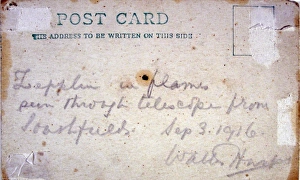 POST CARD
THE ADDRESS TO BE WRITTEN ON THIS SIDE
Zepplin in flames
seen through telescope from
Southfields Sep 3. 1916
Walter